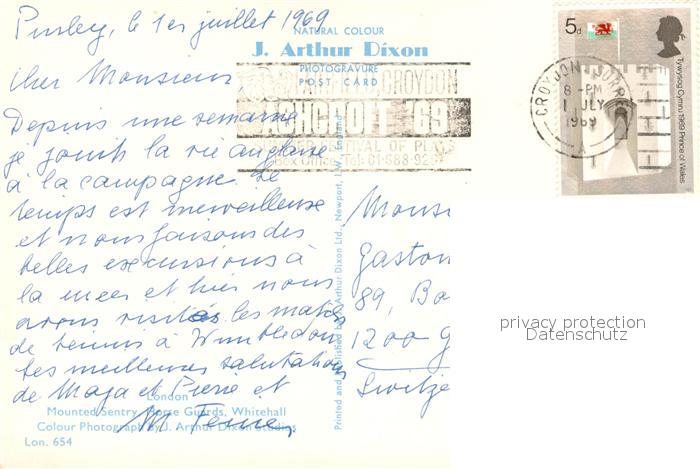 Purley, le 1er juillet 1969
NATURAL COLOUR
J. Arthur Dixon
PHOTOGRAVURE
POST CARD
Cher Monsieur,
Depuis une semaine
je jouit la vie anglaise
à la campagne. Le
temps est merveilleuse
et nous faisons des
belles excursions à
la meer et hier nous
avons visités les matchs
de tennis à Wimbledon
Les meilleures salutations
de Maja et Pierre et
M.
CROYDON
ASHCROFT '69
FESTIVAL OF PLAYS
Box Office Tel: 01-688-92
5d
Tywysog Cymru 1969 Prince of Wales
CROYDON SURREY
8 - PM
1 JLY
1969
A
Mons
Gaston
89, Bo
1200 G
Switze
Printed and Published by J. Arthur Dixon Ltd., Newport, I.W., England
London
Mounted Sentry, Horse Guards, Whitehall
Colour Photograph by J. Arthur Dixon Studios
Lon. 654
privacy protection
Datenschutz